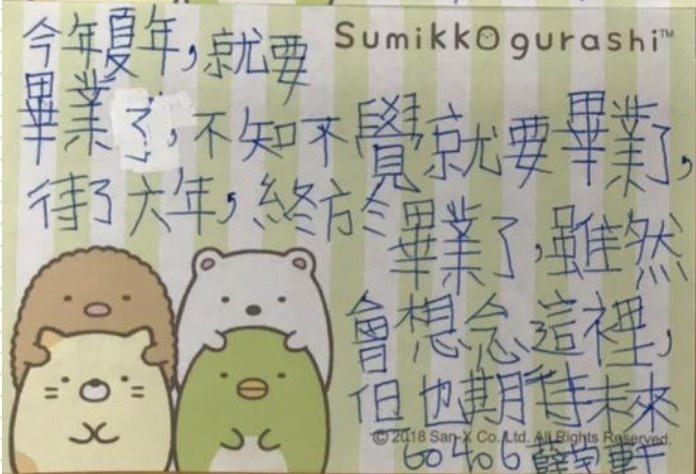 Sumikko gurashi™
今年夏年，就要
畢業了，不知不覺就要畢業了，
待了六年，終於
畢業了，雖然
會想念這裡，
但也期待未來
© 2018 San-X Co., Ltd. All Rights Reserved.
60406